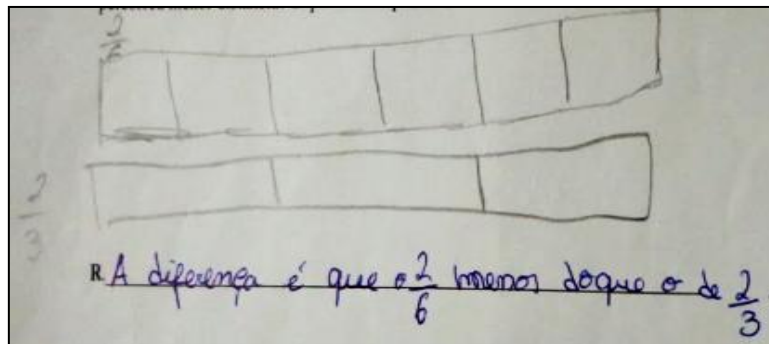 2/6
2/3
R. A diferença é que o 2/6 menor doque o de 2/3